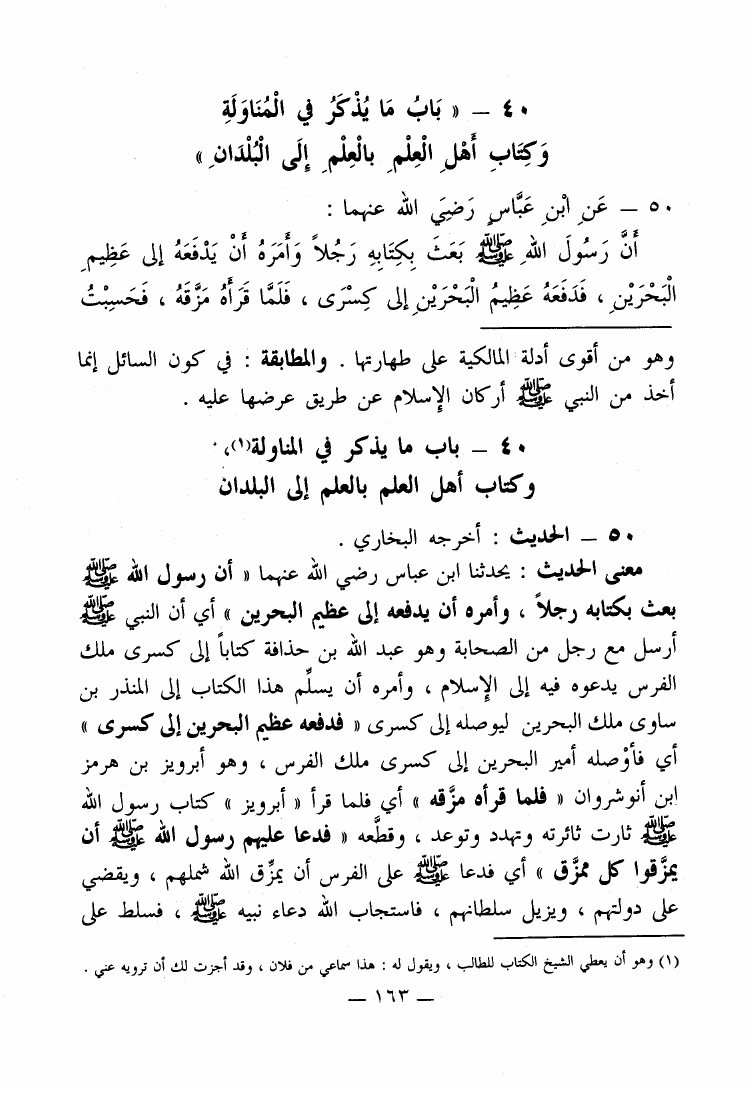 ٤٠ ــ « بَابُ مَا يُذْكَرُ في الْمُنَاوَلَةِ
وَكِتَابِ أَهْلِ الْعِلْمِ بِالْعِلْمِ إِلَى الْبُلْدَانِ »
٥٠ ــ عَنِ ابْنِ عَبَّاسٍ رَضِيَ الله عنهما :
أَنَّ رَسُولَ اللهِ ﷺ بَعَثَ بِكِتَابِهِ رَجُلاً وَأَمَرَهُ أَنْ يَدْفَعَهُ إلى عَظِيمِ
الْبَحْرَيْنِ ، فَدَفَعَهُ عَظِيمُ الْبَحْرَيْنِ إلى كِسْرَى ، فَلَمَّا قَرَأَهُ مَزَّقَهُ ، فَحَسِبْتُ
وهو من أقوى أدلة المالكية على طهارتها . والمطابقة : في كون السائل إنما
أخذ من النبي ﷺ أركان الإسلام عن طريق عرضها عليه .
٤٠ ــ باب ما يذكر في المناولة(١)،
وكتاب أهل العلم بالعلم إلى البلدان
٥٠ ــ الحديث : أخرجه البخاري .
معنى الحديث : يحدثنا ابن عباس رضي الله عنهما « أن رسول الله ﷺ
بعث بكتابه رجلاً ، وأمره أن يدفعه إلى عظيم البحرين » أي أن النبي ﷺ
أرسل مع رجل من الصحابة وهو عبد الله بن حذافة كتاباً إلى كسرى ملك
الفرس يدعوه فيه إلى الإسلام ، وأمره أن يسلِّم هذا الكتاب إلى المنذر بن
ساوى ملك البحرين ليوصله إلى كسرى « فدفعه عظيم البحرين إلى كسرى »
أي فأوْصله أمير البحرين إلى كسرى ملك الفرس ، وهو أبرويز بن هرمز
ابن أنوشروان « فلما قرأه مزَّقه » أي فلما قرأ « أبرويز » كتاب رسول الله
ﷺ ثارت ثائرته وتهدد وتوعد ، وقطَّعه « فدعا عليهم رسول الله ﷺ أن
يمزَّقوا كل ممزَّق » أي فدعا ﷺ على الفرس أن يمزِّق الله شملهم ، ويقضي
على دولتهم ، ويزيل سلطانهم ، فاستجاب الله دعاء نبيه ﷺ ، فسلط على
(١) وهو أن يعطي الشيخ الكتاب للطالب ، ويقول له : هذا سماعي من فلان ، وقد أجزت لك أن ترويه عني .
ــ ١٦٣ ــ